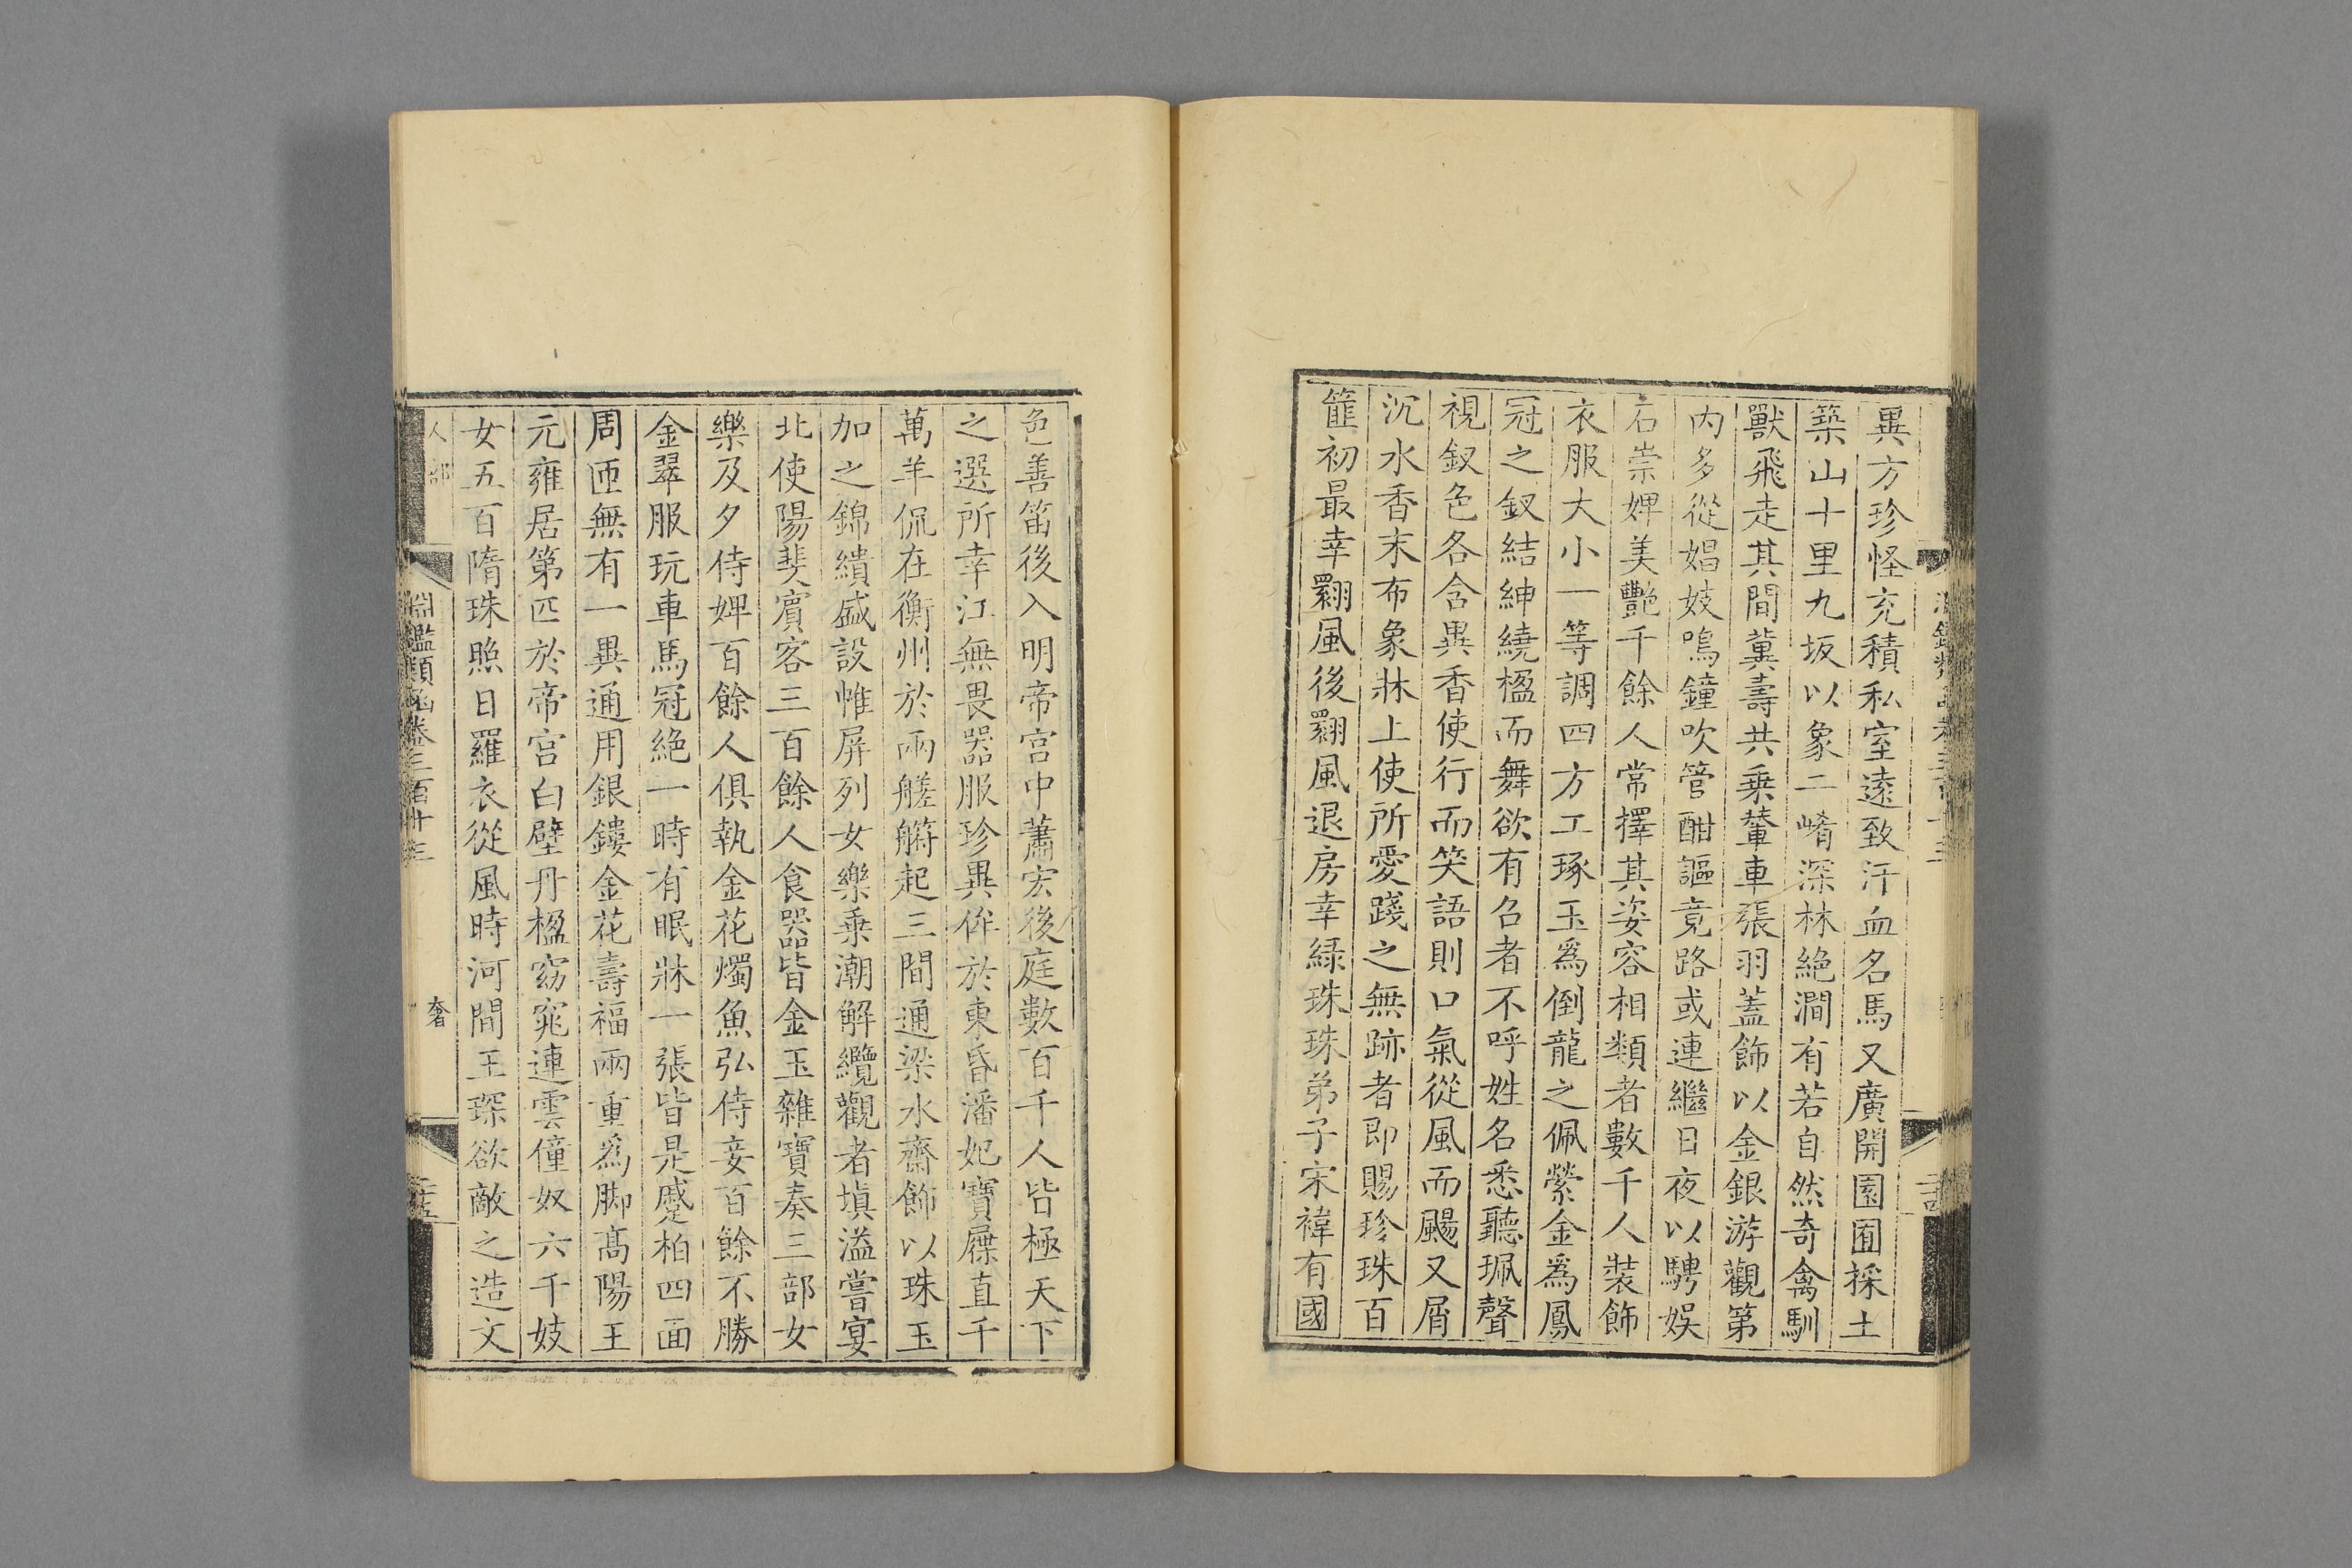 異方珍怪充積私室遠致汗血名馬又廣開園囿採土
築山十里九坂以象二崤深林絶澗有若自然奇禽馴
獸飛走其間冀壽共乗輦車張羽蓋飾以金銀游觀第
内多從娼妓鳴鐘吹管酣謳竟路或連繼日夜以騁娱
石崇婢美艷千餘人常擇其姿容相類者數千人装飾
衣服大小一等調四方工琢玉爲倒龍之佩縈金爲鳳
冠之釵結紳繞楹而舞欲有召者不呼姓名悉聽珮聲
視釵色各含異香使行而笑語則口氣從風而颺又屑
沉水香末布象牀上使所愛踐之無跡者即賜珍珠百
篚初最幸翾風後翾風退房幸緑珠珠弟子宋褘有國
色善笛後入明帝宫中蕭宏後庭數百千人皆極天下
之選所幸江無畏器服珍異侔於東昏潘妃寶屧直千
萬羊侃在衡州於兩艖艀起三間通梁水齋飾以珠玉
加之錦繢盛設帷屏列女樂乗潮解纜觀者填溢嘗宴
北使陽斐賓客三百餘人食器皆金玉雜寶奏三部女
樂及夕侍婢百餘人俱執金花燭魚弘侍妾百餘不勝
金翠服玩車馬冠絶一時有眠牀一張皆是蹙柏四面
周匝無有一異通用銀鏤金花壽福兩重爲脚髙陽王
元雍居第匹於帝宫白壁丹楹窈窕連雲僮奴六千妓
女五百隋珠照日羅衣從風時河間王琛欲敵之造文
人部
淵鑑類函卷三百十三
奢
二十五